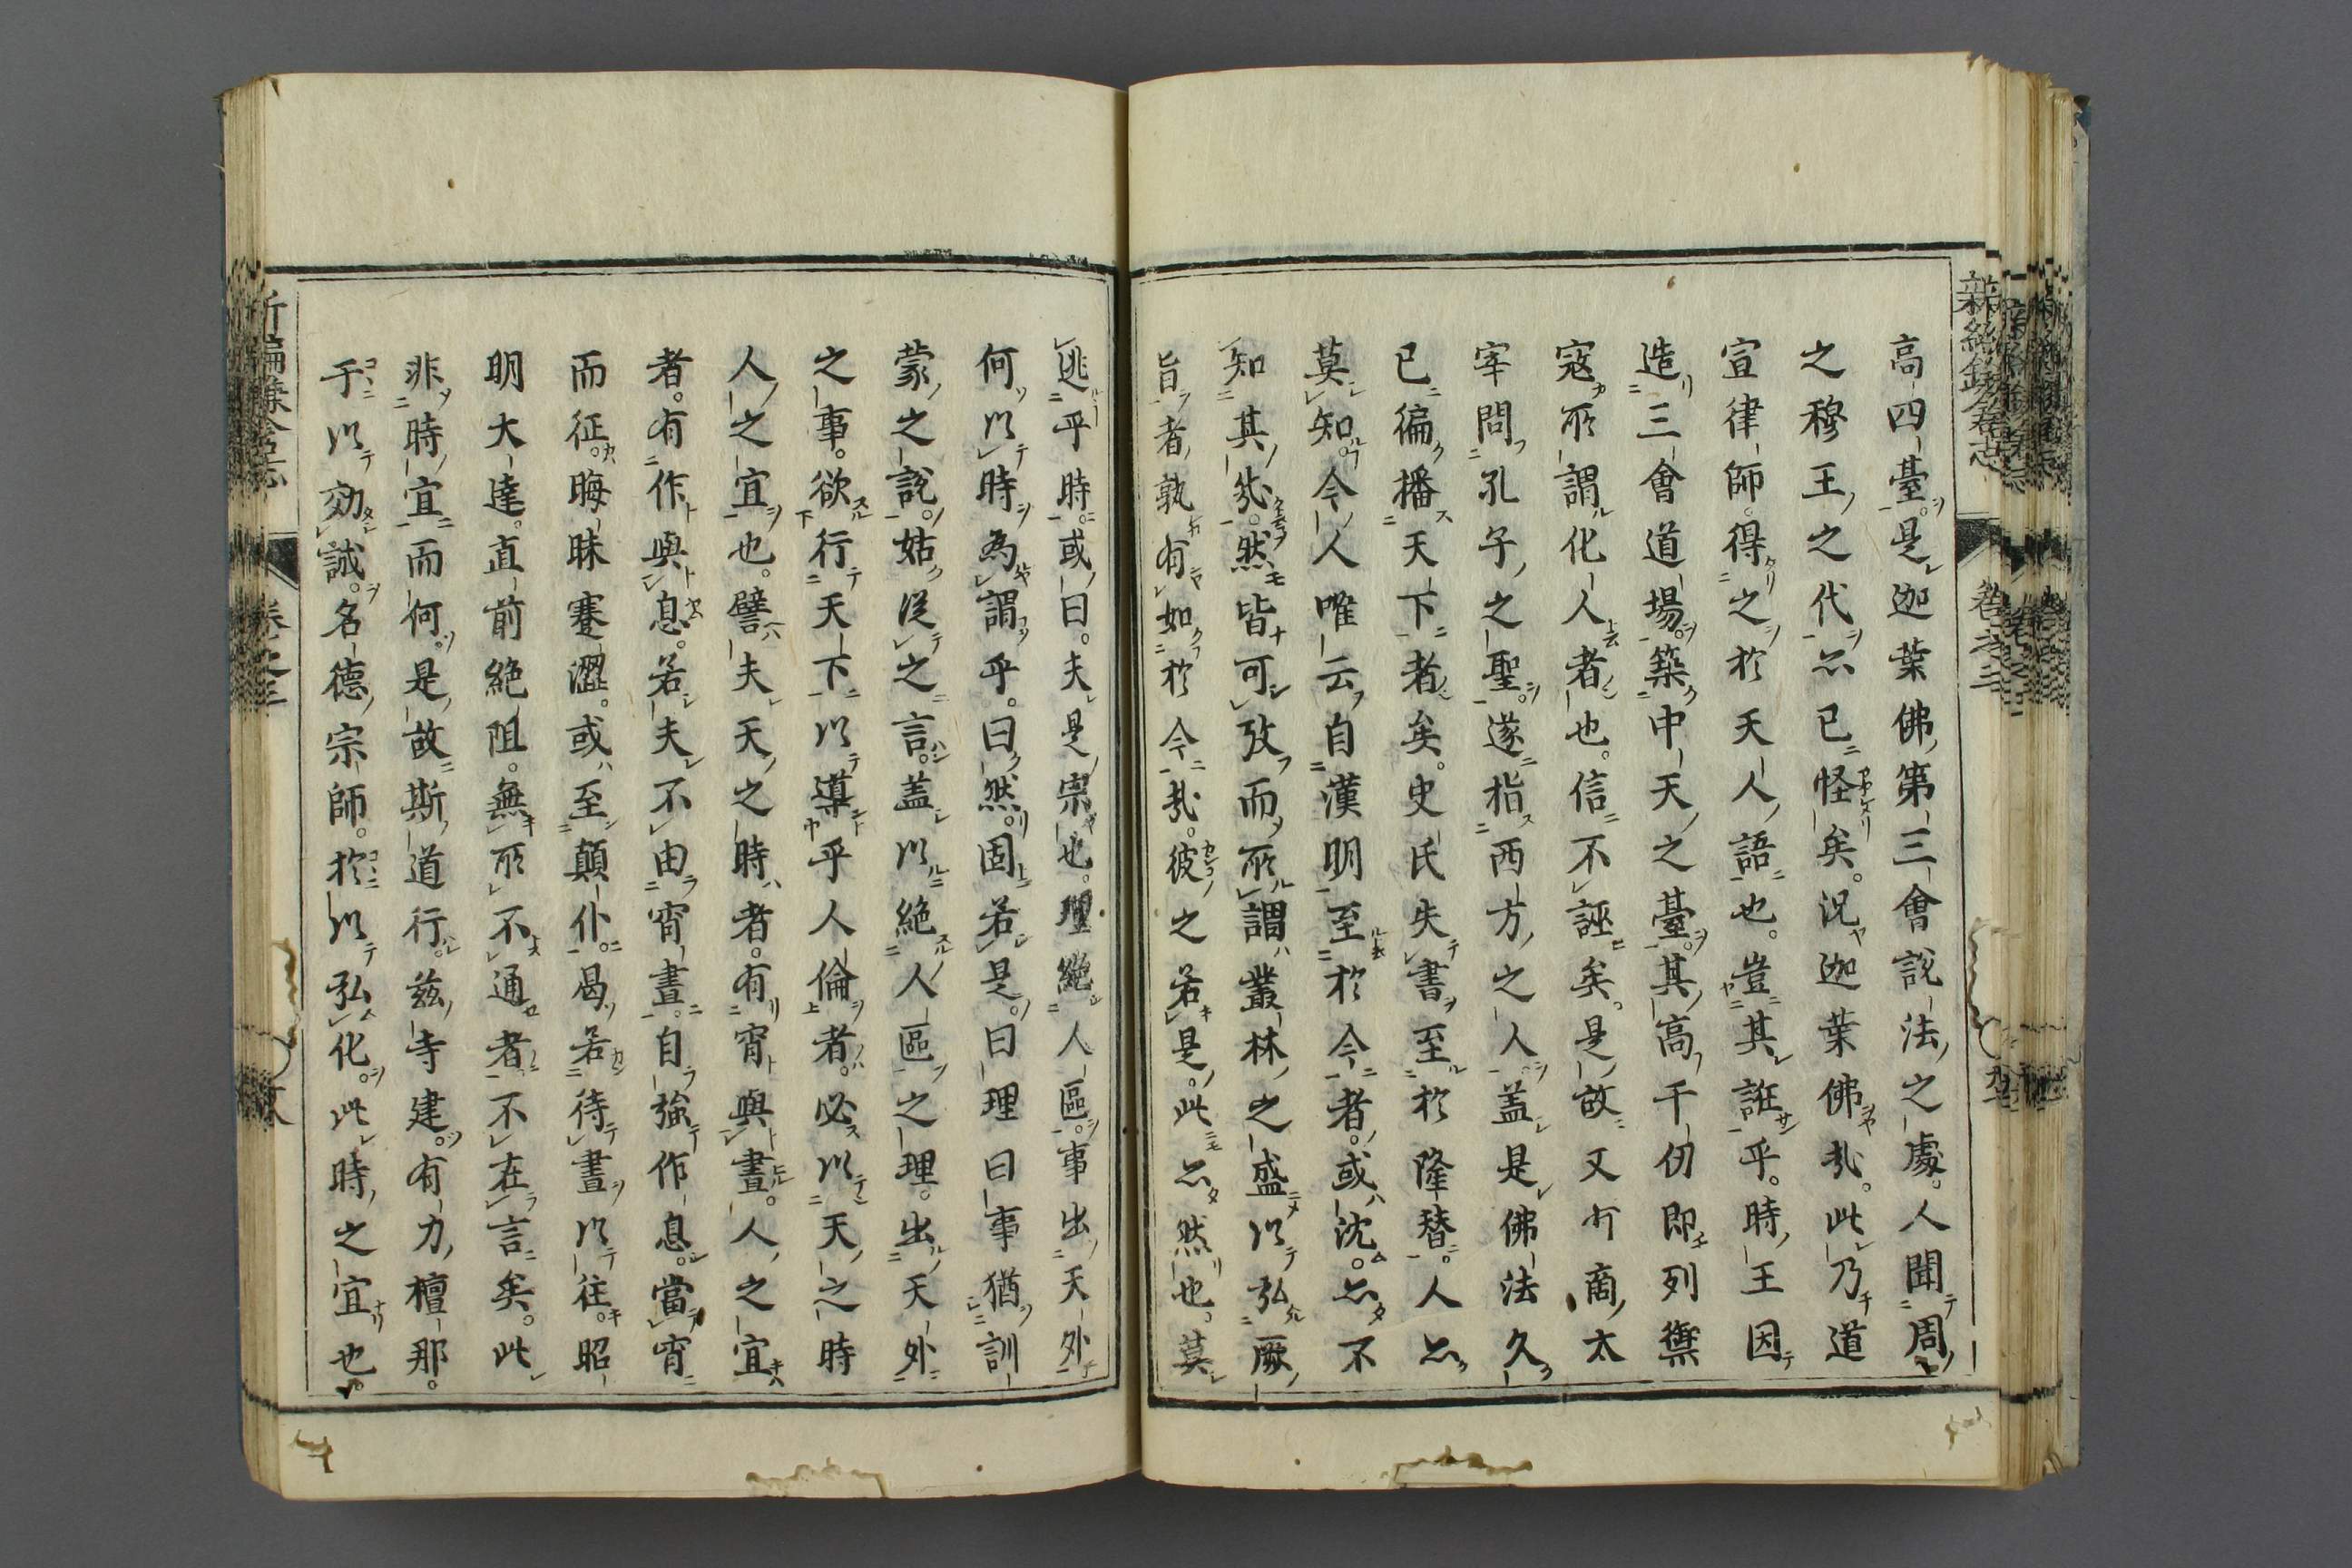 高四臺。是迦葉佛第三會說法之處。人聞周
之穆王之代。亦已怪矣。況迦葉佛哉。此乃道
宣律師。得之於天人語也。豈其誑乎。時王因
造三會道場。築中天之臺。其高千仞即列禦
寇所謂化人者也。信不誣矣。是故又有商太
宰問孔子之聖。遂指西方之人。蓋是佛法久
已徧播天下者矣。史氏失書至於隆替。人亦
莫知。今人唯云自漢明至於今者。或沈。亦不
知其幾。然皆可攷而所謂叢林之盛以弘厥
旨者孰有如於今哉。彼之若是。此亦然也。莫
逃乎時。或曰。夫是宗也。理絶人區。事出天外
何以時為謂乎。曰然。固若是。曰理曰事猶訓
蒙之說。姑從之言。蓋以絶人區之理。出天外
之事。欲行天下以導乎人倫者。必以天之時
人之宜也。譬夫天之時者。有宵與晝。人之宜
者。有作與息。若夫不由宵晝。自強作息。當宵
而征。晦昧蹇澀。或至顛仆。曷若待晝以往。昭
明大達。直前絶阻。無所不通者。不在言矣。此
非時宜而何。是故斯道行。茲寺建。有力檀那。
于以効誠。名德宗師。於以弘化。此時之宜也。
新編鎌倉志
卷之三